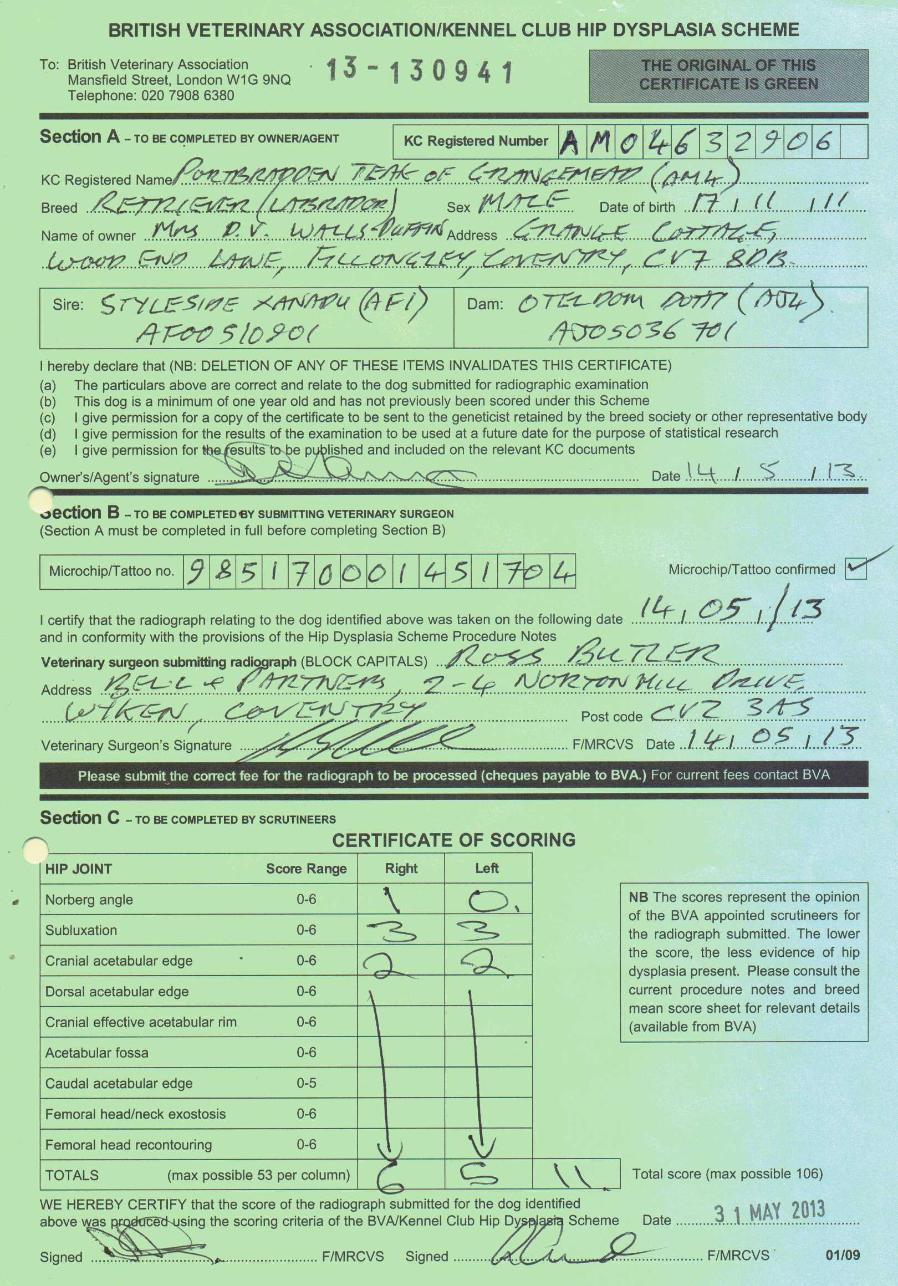 BRITISH VETERINARY ASSOCIATION/KENNEL CLUB HIP DYSPLASIA SCHEME
To: British Veterinary Association
Mansfield Street, London W1G 9NQ
Telephone: 020 7908 6380
13-130941
THE ORIGINAL OF THIS
CERTIFICATE IS GREEN
Section A – TO BE COMPLETED BY OWNER/AGENT
KC Registered Number AM04632906
KC Registered Name PORTBRADDEN TEAK OF GRANGEMEAD (AM4)
Breed RETRIEVER (LABRADOR) Sex MALE Date of birth 17 / 11 / 11
Name of owner MRS D.V. WALLS-DUFFIN Address GRANGE COTTAGE,
WOOD END LANE, FILLONGLEY, COVENTRY, CV7 8DB.
Sire: STYLESIDE XANADU (AF1)
AF00510901
Dam: OTELDOM DOTTI (AJ4)
AJ05036701
I hereby declare that (NB: DELETION OF ANY OF THESE ITEMS INVALIDATES THIS CERTIFICATE)
(a) The particulars above are correct and relate to the dog submitted for radiographic examination
(b) This dog is a minimum of one year old and has not previously been scored under this Scheme
(c) I give permission for a copy of the certificate to be sent to the geneticist retained by the breed society or other representative body
(d) I give permission for the results of the examination to be used at a future date for the purpose of statistical research
(e) I give permission for the results to be published and included on the relevant KC documents
Owner's/Agent's signature Date 14 / 5 / 13
Section B – TO BE COMPLETED BY SUBMITTING VETERINARY SURGEON
(Section A must be completed in full before completing Section B)
Microchip/Tattoo no. 985170001451704 Microchip/Tattoo confirmed ✓
I certify that the radiograph relating to the dog identified above was taken on the following date 14 / 05 / 13
and in conformity with the provisions of the Hip Dysplasia Scheme Procedure Notes
Veterinary surgeon submitting radiograph (BLOCK CAPITALS) ROSS BUTLER
Address BELL & PARTNERS, 2-4 NORTON HILL DRIVE,
WYKEN, COVENTRY Post code CV2 3AS
Veterinary Surgeon's Signature F/MRCVS Date 14 / 05 / 13
Please submit the correct fee for the radiograph to be processed (cheques payable to BVA.) For current fees contact BVA
Section C – TO BE COMPLETED BY SCRUTINEERS
CERTIFICATE OF SCORING
HIP JOINT Score Range Right Left
Norberg angle 0-6 1 0
Subluxation 0-6 3 3
Cranial acetabular edge 0-6 2 2
Dorsal acetabular edge 0-6
Cranial effective acetabular rim 0-6
Acetabular fossa 0-6
Caudal acetabular edge 0-5
Femoral head/neck exostosis 0-6
Femoral head recontouring 0-6
TOTALS (max possible 53 per column) 6 5 11 Total score (max possible 106)
NB The scores represent the opinion
of the BVA appointed scrutineers for
the radiograph submitted. The lower
the score, the less evidence of hip
dysplasia present. Please consult the
current procedure notes and breed
mean score sheet for relevant details
(available from BVA)
WE HEREBY CERTIFY that the score of the radiograph submitted for the dog identified
above was produced using the scoring criteria of the BVA/Kennel Club Hip Dysplasia Scheme Date 31 MAY 2013
Signed F/MRCVS Signed F/MRCVS 01/09